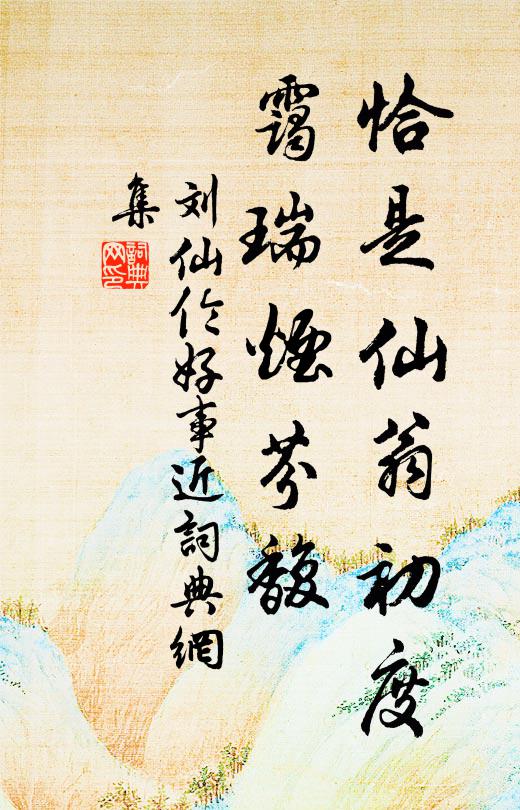 恰是仙翁初度
霭瑞煙芬馥
刘仙伦好事近詞典網
集
詞典
网印